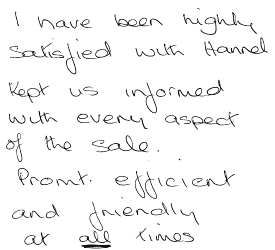 I have been highly
satisfied with Hannel
Kept us informed
with every aspect
of the sale.
Promt. efficient
and friendly
at all times